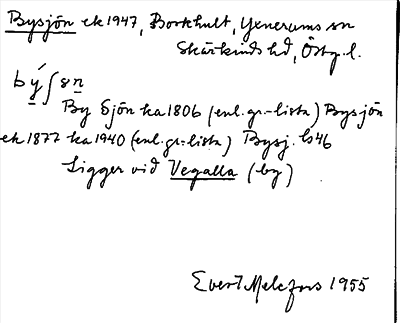 Bysjön ek 1947, Borkhult, Yxnerums sn
Skärkinds hd, Östg. l.
bý∫øn
By Sjön ka 1806 (enl. gr.-lista) Bysjön
ek 1877 ka 1940 (enl. gr.-lista) Bysj. ls 46
Ligger vid Vegalla (by)
Evert Melefors 1955